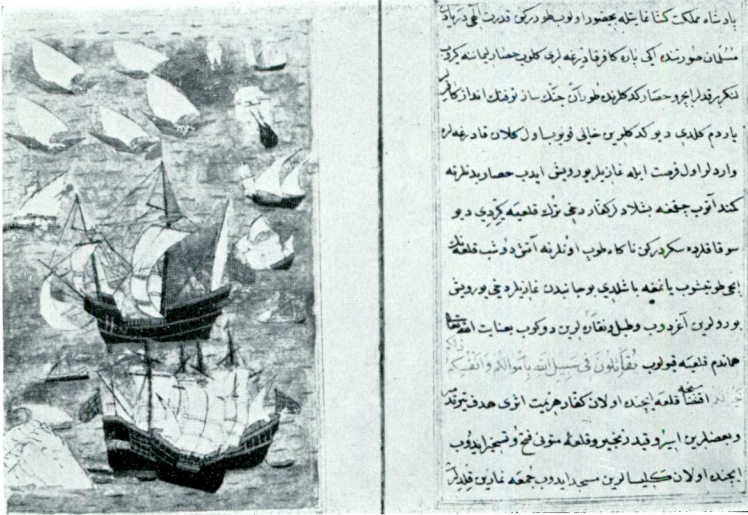 پادشاه مملکت کشا غایتله بحضور اولوب طوررکن قدرت الهی دریاده
مسلمان صورتنده ایکی پاره کافر قادرغه لری کلوب حصار لیماننه کیروب
لنکر ایچرو حصار کدکلرنده طوران جنك ساز توفنك انداز کافرلر
یاردم کلدی دیو کدکلرین خالی قویوب اول کلان قادرغه لره
واردلر اول فرصت ایله غازیلر یورویش ایدب حصار بدنلرنه
کمند آتوب چقمغه بشلادلر کفار دخی ترك قلعیه کیردی دیو
سوقاقلرده سکردرکن ناکاه طوب اوتلرنه آتش دوشب قلعه نك
ایچی طوتشوب یانمغه باشلدی بو جانبدن غازیلر دخی یورویش
بورولرین آغردوب و طبل و نقاره لرین دوکوب بعنایت الله تعالی
هماندم قلعیه قویلوب یقاتلون فی سبیل الله باموالهم وانفسهم
قلعه ایچنده اولان کفار هزیمت اثری هدف تیر
و بعضلرین اسیر و قید زنجیر و قلعهٔ متونی فتح و تسخیر ایدوب
ایچنده اولان کلیسالرین مسجد ایدوب جمعه نمازین قلدیلر